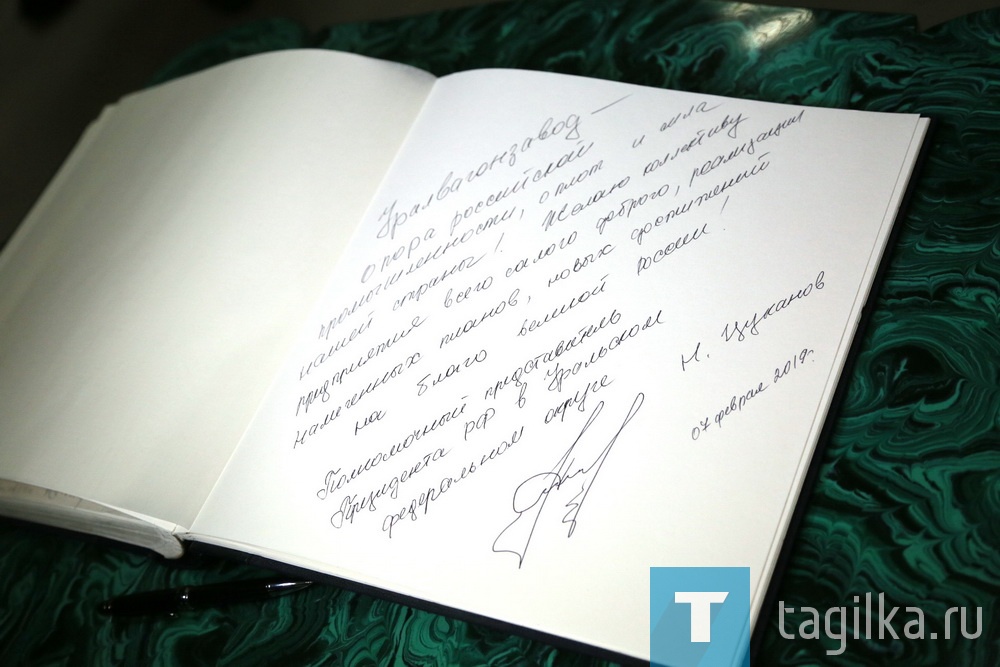 Уралвагонзавод –
опора российской
промышленности, оплот и сила
нашей страны! Желаю коллективу
предприятия всего самого доброго, реализации
намеченных планов, новых достижений
на благо великой России!
Полномочный представитель
Президента РФ в Уральском
федеральном округе Н. Цуканов
07 февраля 2019г.
T tagilka.ru